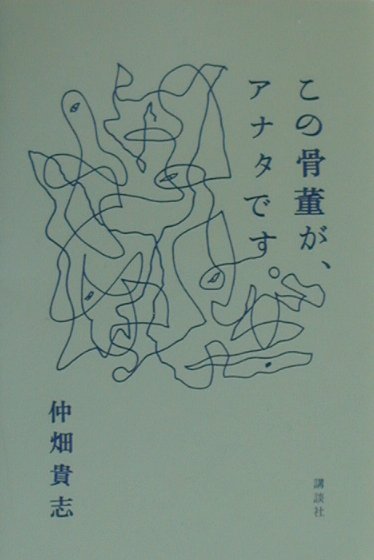 この骨董が、
アナタです。
仲畑貴志
講談社